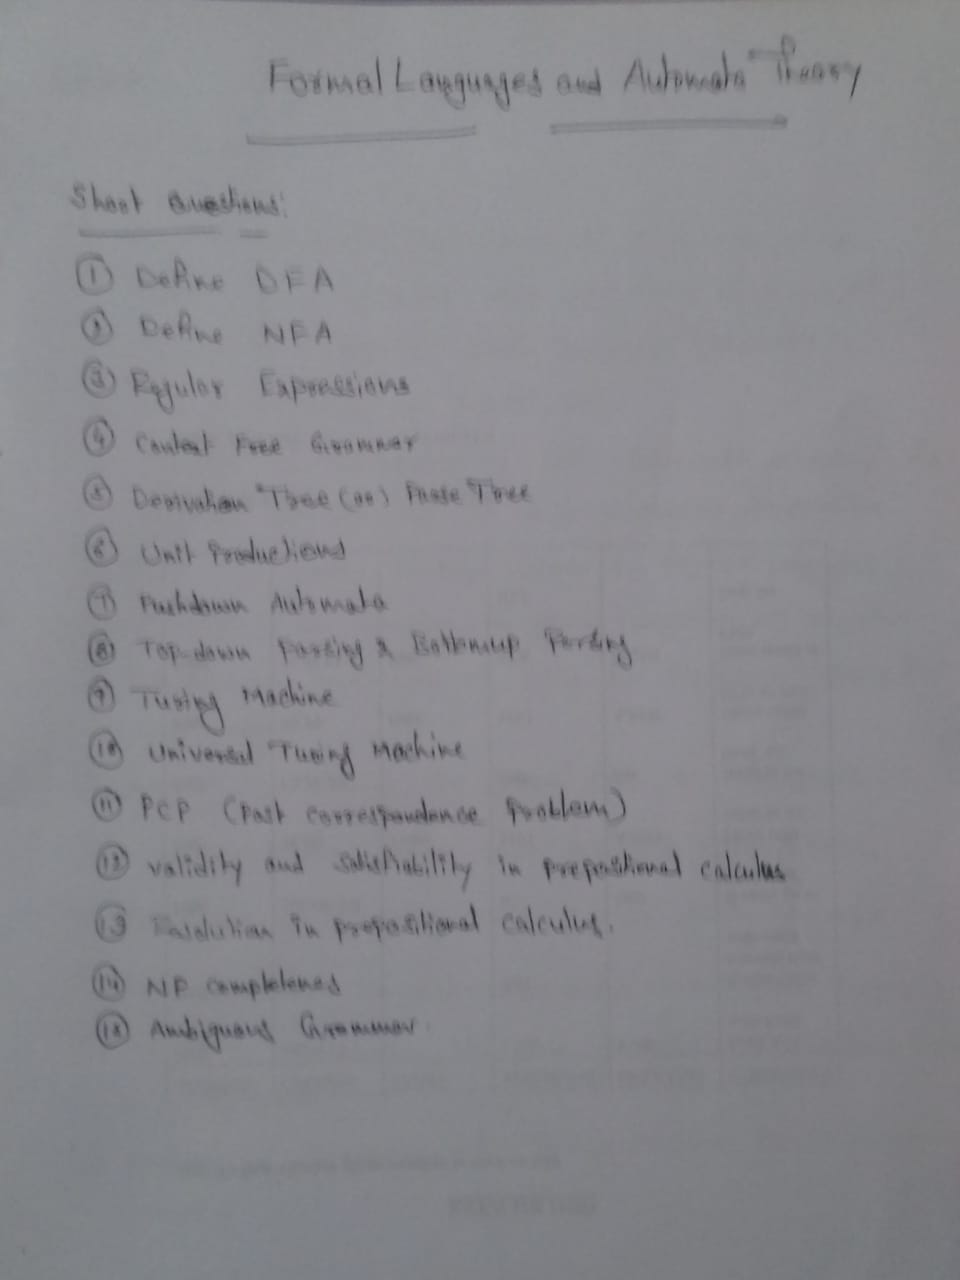 Formal Languages and Automata Theory
Short Questions:
① Define DFA
② Define NFA
③ Regular Expressions
④ Context Free Grammar
⑤ Derivation Tree (or) Parse Tree
⑥ Unit Productions
⑦ Pushdown Automata
⑧ Top-down Parsing & Bottomup Parsing
⑨ Turing Machine
⑩ Universal Turing Machine
⑪ PCP (Post correspondence Problem)
⑫ validity and satisfiability in prepositional calculus
⑬ Resolution in propositional calculus.
⑭ NP completenes
⑮ Ambiguous Grammar.